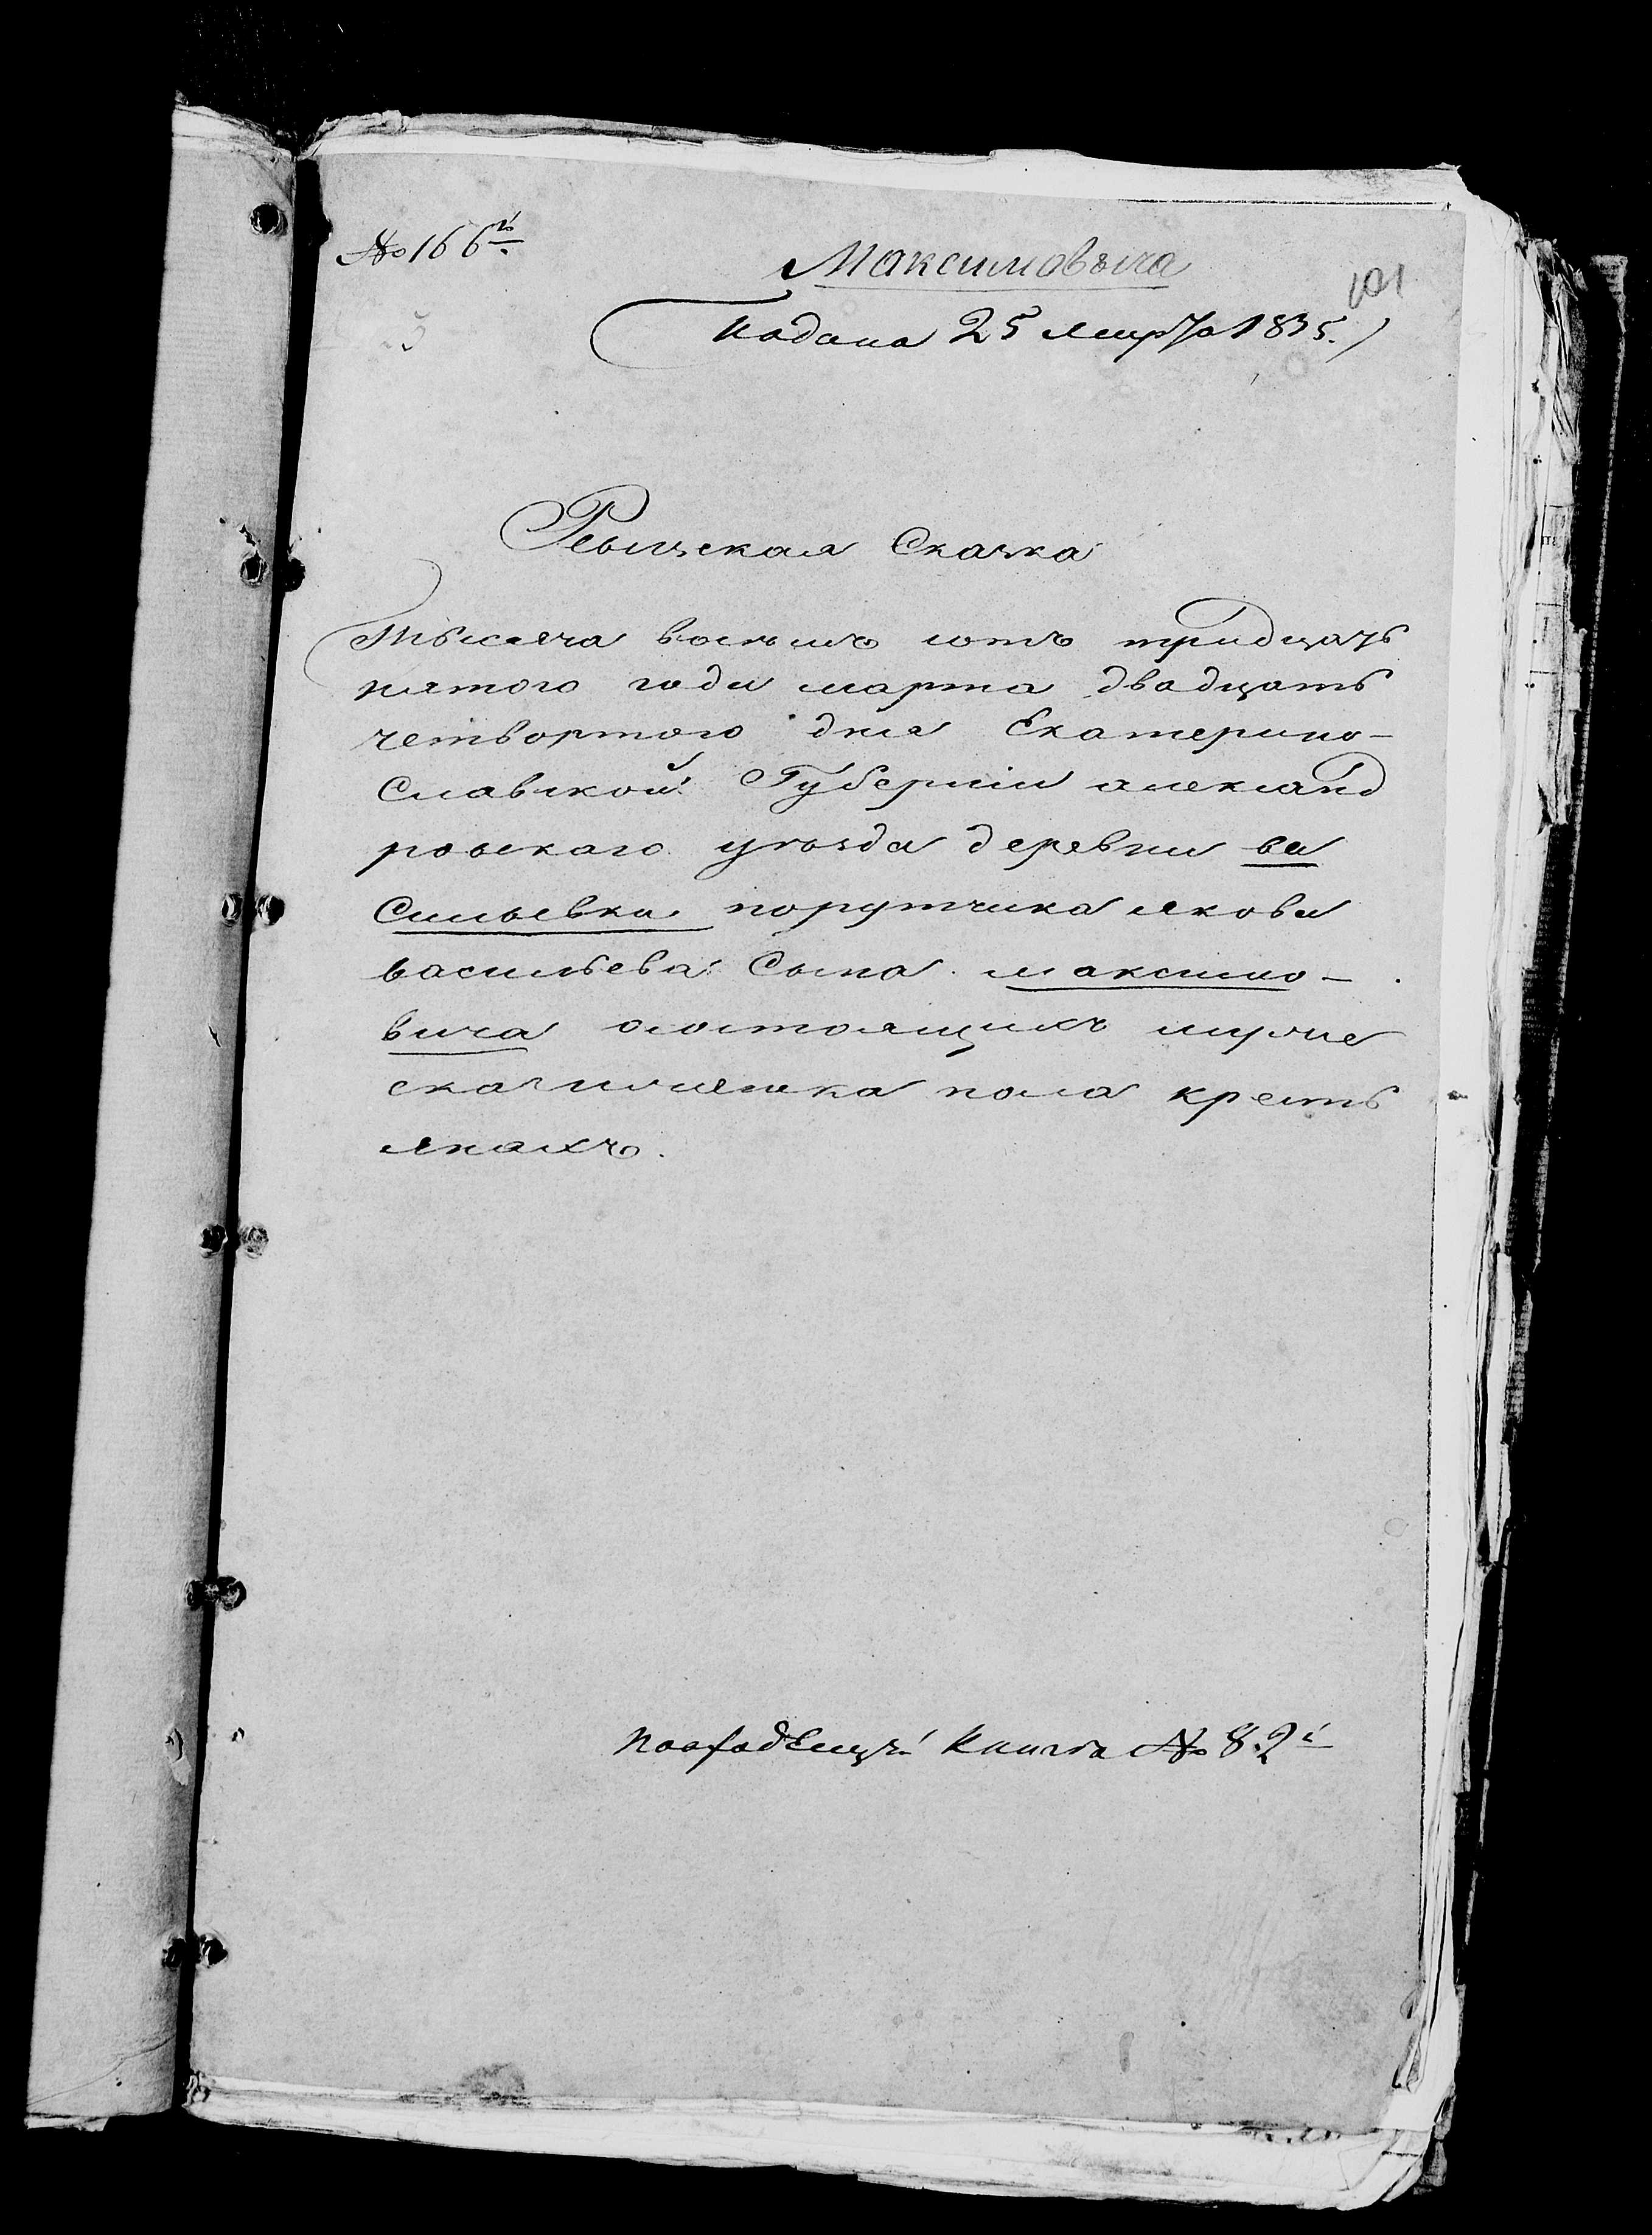 № 166й
Максимовича
101
Подана 25 марта 1835.
Ревизская Сказка
Тысяча восемъ сотъ тридцать
пятого года марта двадцать
четвортого дня Екатерино-
Славской Губернии александ
ровскаго уѣзда деревни ва
Сильевки порутчика якова
васильева Сына максимо-
вича осостоящихъ мужес
ска и женска пола кресть
янахъ.
книга № 82й